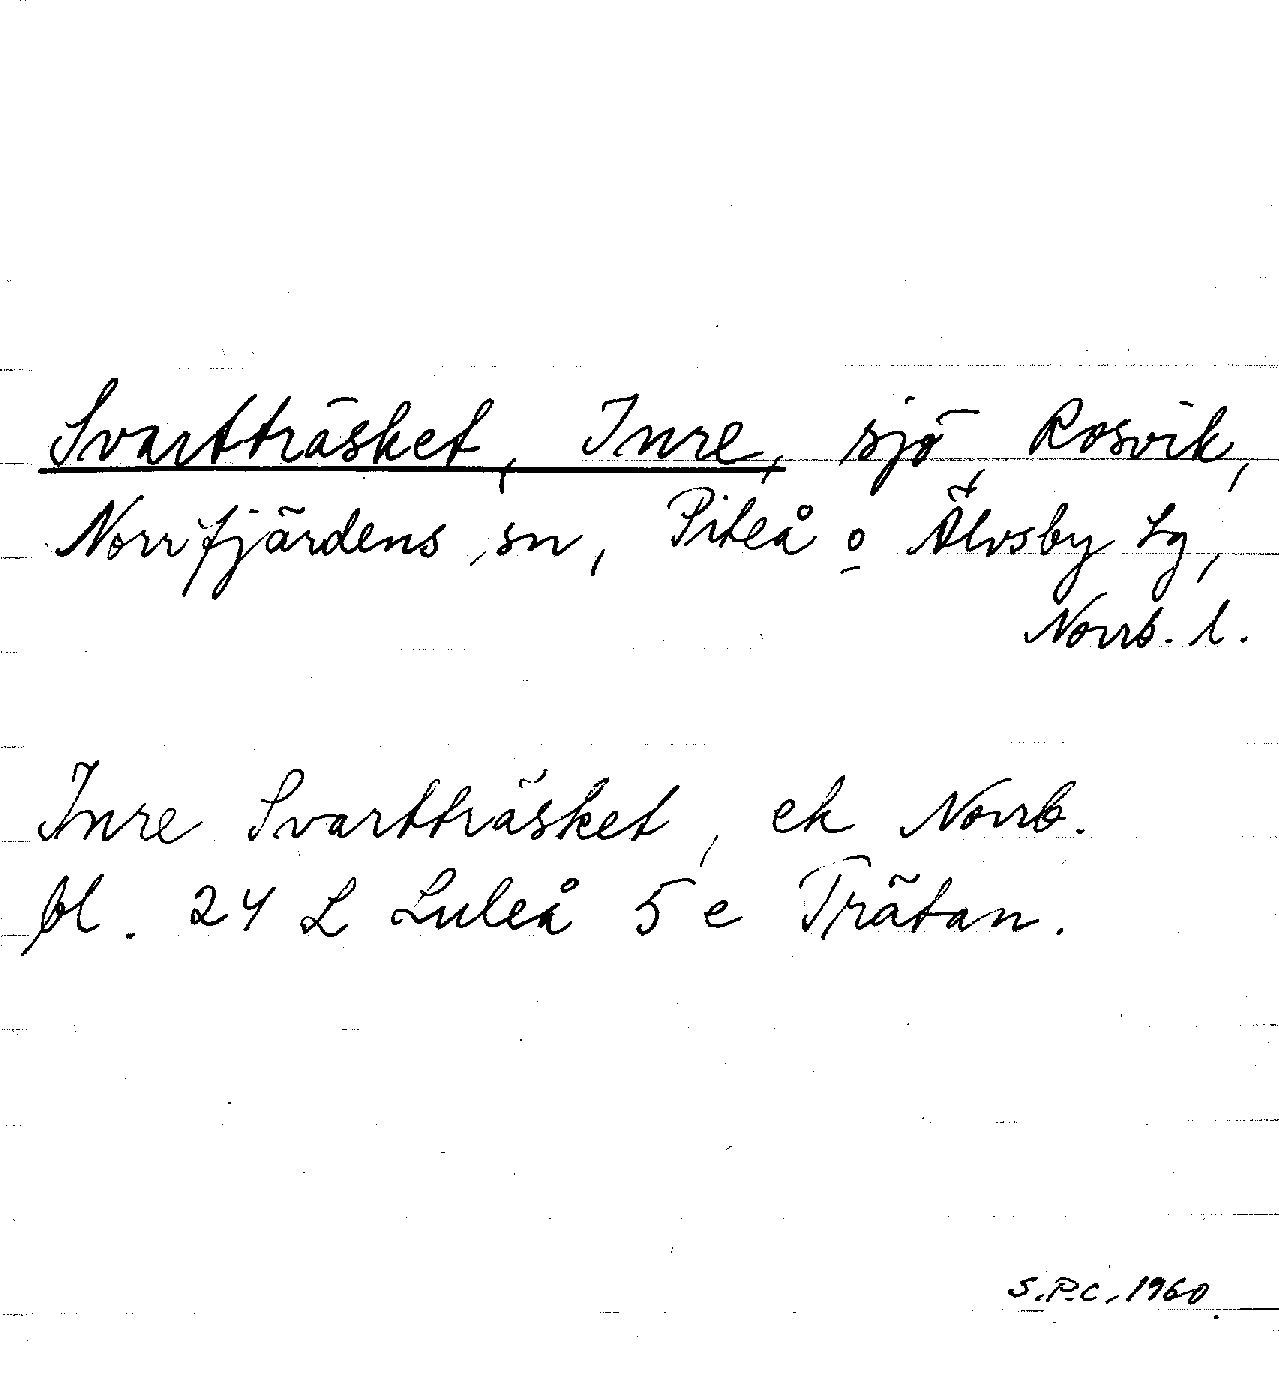 Svartträsket, Inre, sjö, Rosvik,
Norrfjärdens sn, Piteå o Älvsby tg,
Norrb. l.
Inre Svartträsket, ek Norrb.
bl. 24 L Luleå 5 e Trätan.
S.P.C, 1960